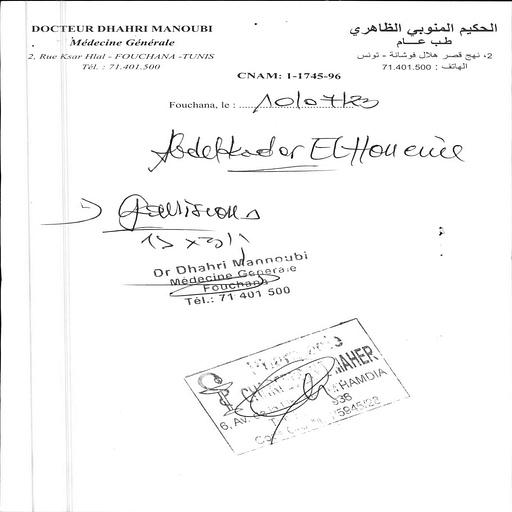 DOCTEUR DHAHRI MANOUBI
Médecine Générale
2, Rue Ksar Hlal - FOUCHANA -TUNIS
Tél. : 71.401.500
الحكيم المنوبي الظاهري
طب عــام
2، نهج قصر هلال فوشانة - تونس
الهاتف : 71.401.500
CNAM: 1-1745-96
Fouchana, le : 10/07/23
Abdelkader El Houeine
15 x 3/j
Dr Dhahri Mannoubi
Médecine Generale
Fouchana
Tél.: 71 401 500
MAHER
6, Av. HAMDIA